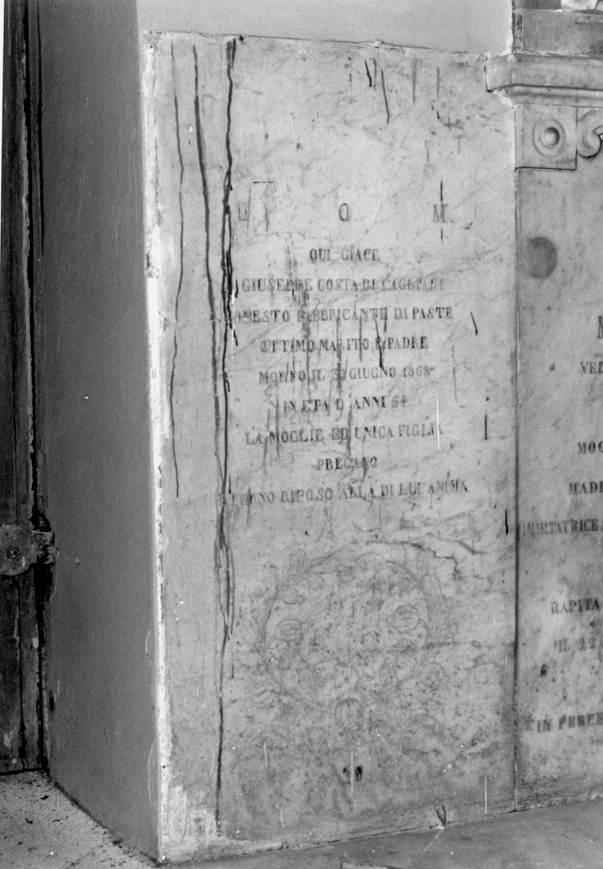 D. O. M.
QUI GIACE
GIUSEPPE COSTA DI CAGLIARI
ONESTO FABBRICANTE DI PASTE
OTTIMO MARITO E PADRE
MORTO IL 30 GIUGNO 1868
IN ETÀ D'ANNI 64
LA MOGLIE ED UNICA FIGLIA
PREGANO
ETERNO RIPOSO ALLA DI LUI ANIMA
M
VED
MOG
MADR
RAPITA
IL 22
IN PERE